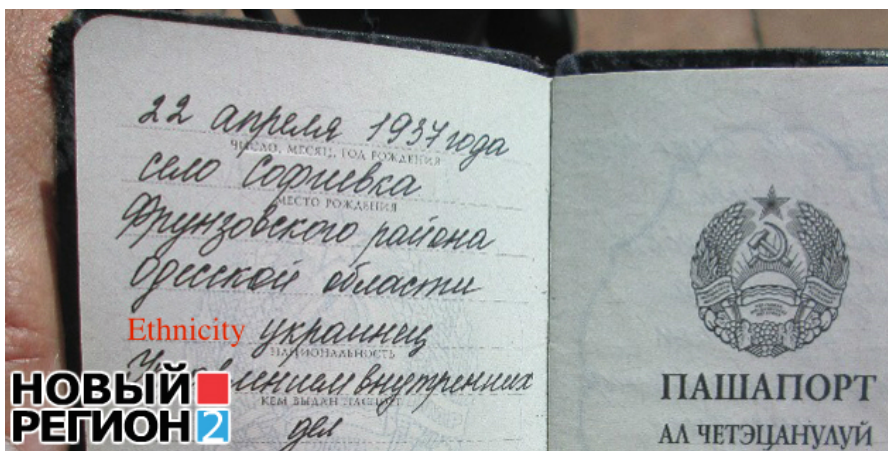 22 апреля 1937 года
ЧИСЛО, МЕСЯЦ, ГОД РОЖДЕНИЯ
село Софиевка
МЕСТО РОЖДЕНИЯ
Фрунзовского района
Одесской области
Ethnicity украинец
НАЦИОНАЛЬНОСТЬ
внутренних
КЕМ ВЫДАН ПАСПОРТ
дел
НОВЫЙ
РЕГИОН 2
ПАШАПОРТ
АЛ ЧЕТЭЦАНУЛУЙ